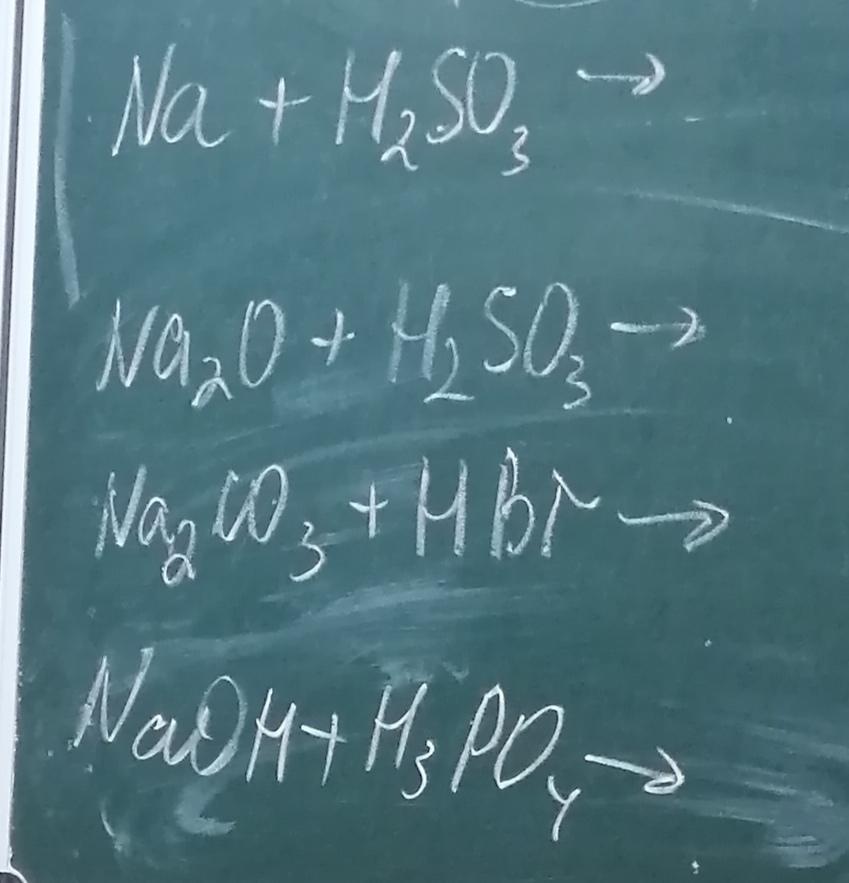 Na + H₂SO₃ →
Na₂O + H₂SO₃ →
Na₂CO₃ + HBr →
NaOH + H₃PO₄ →